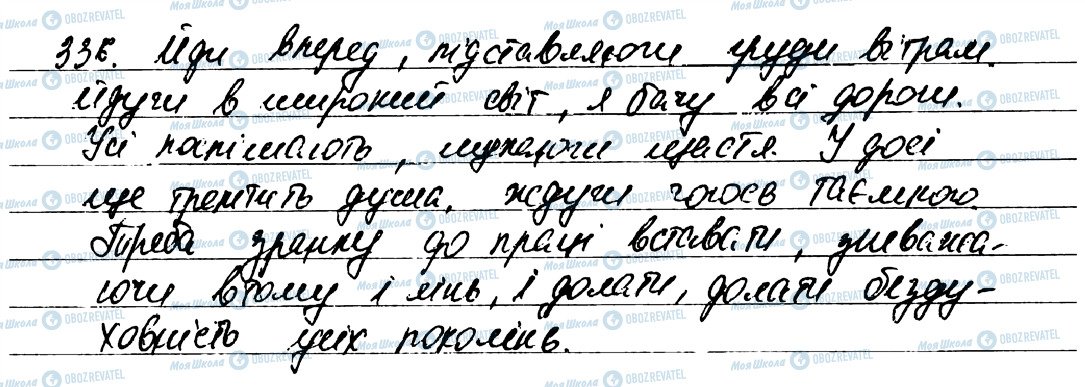 336. Йди вперед, підставляючи груди вітрам.
Йдучи в широкий світ, я бачу всі дороги.
Усі поспішають, шукаючи щастя. У досі
ще тремтить душа, ждучи голосів таємного.
Треба зранку до праці вставати, зневажа-
ючи втому і лінь, і долати, долати безду-
ховність усіх поколінь.